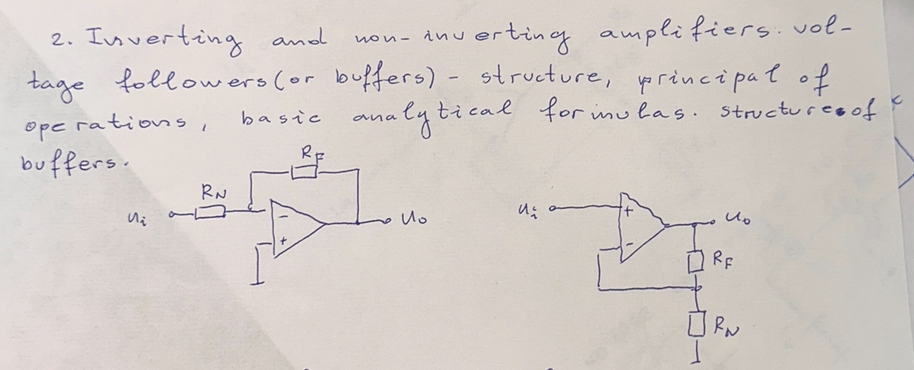 2. Inverting and non-inverting amplifiers. vol-
tage followers (or buffers) - structure, principal of
operations, basic analytical formulas. structures of
buffers.
RF
RN
ui
-
+
uo
ui
+
-
uo
RF
RN